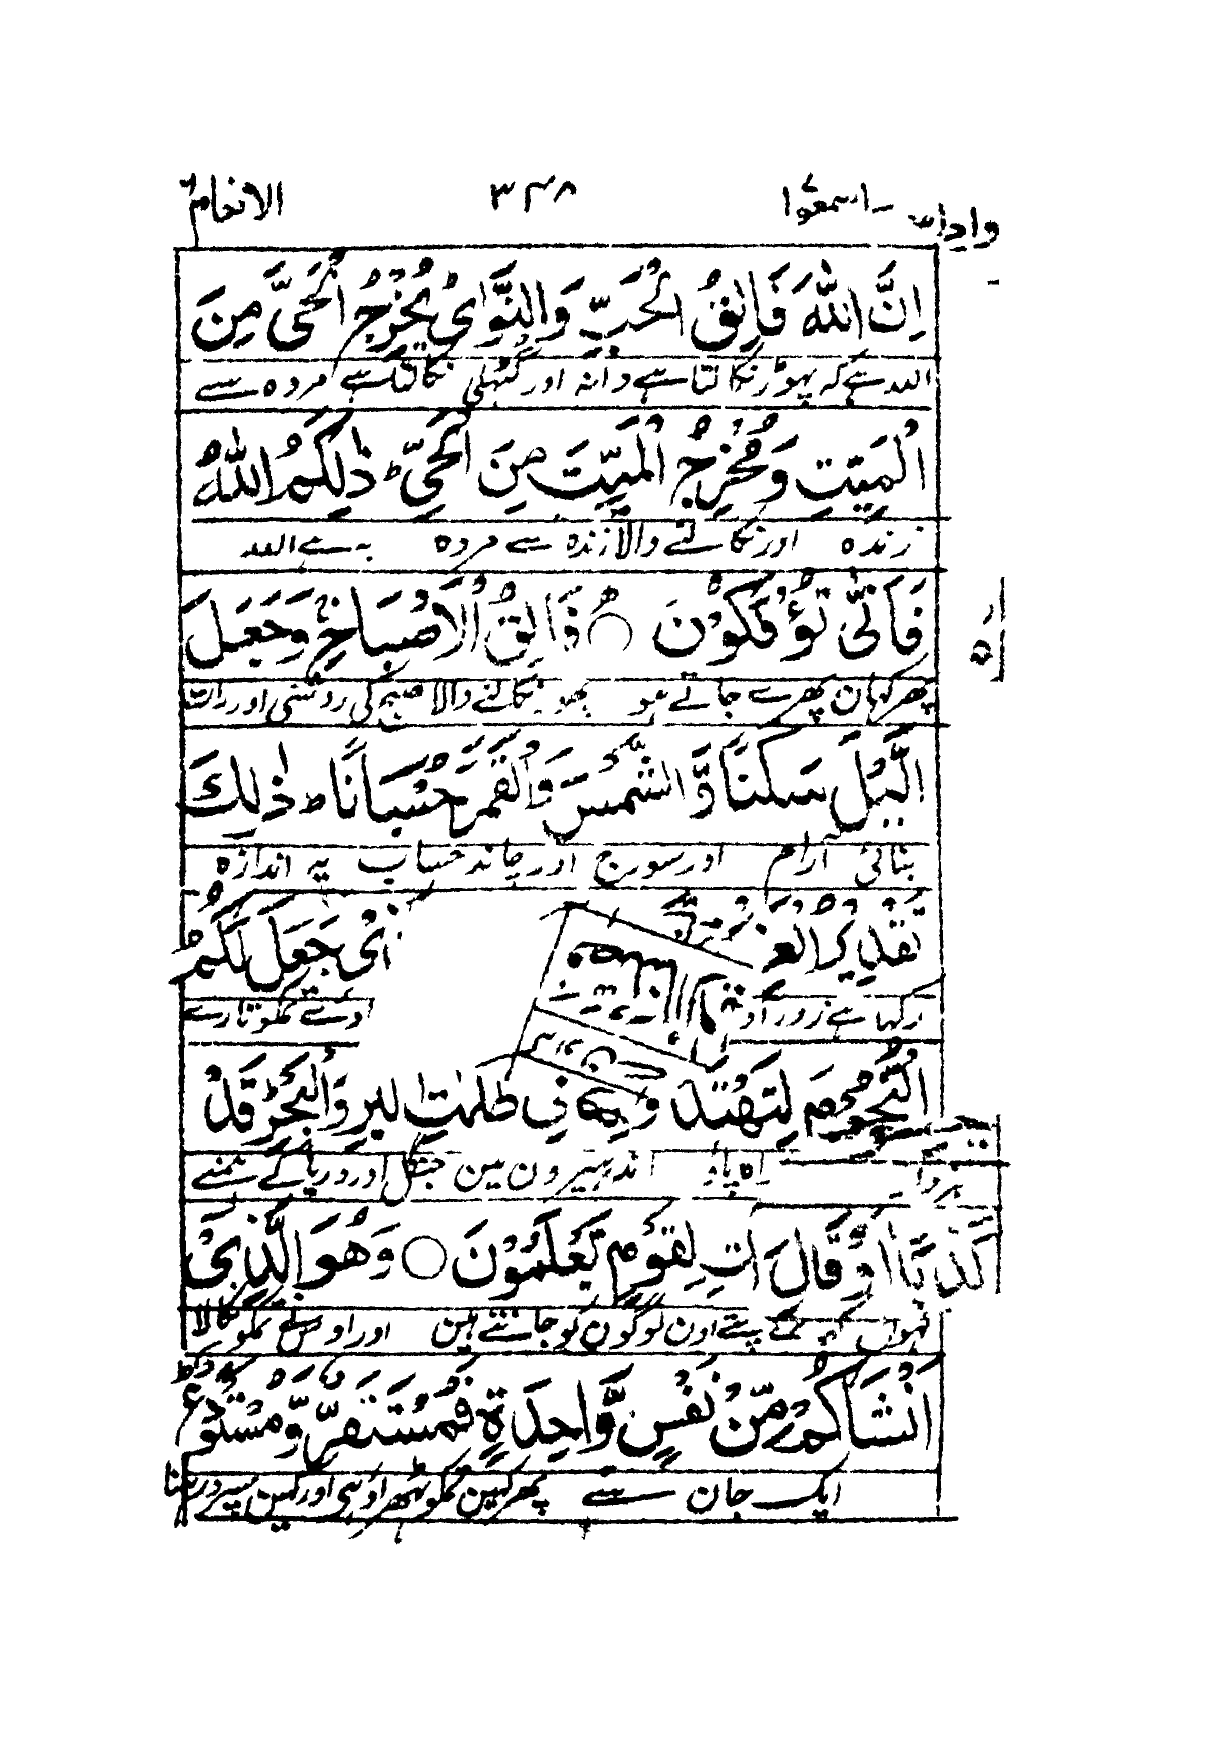 واذا سمعوا ٣٤٨ الانعام ٦
اِنَّ اللّٰهَ فَالِقُ الْحَبِّ وَالنَّوٰى يُخْرِجُ الْحَىَّ مِنَ
اللہ ہے کہ پھوڑ نکالتا ہے دانہ اور گٹھلی نکالتا ہے مردہ سے
الْمَيِّتِ وَمُخْرِجُ الْمَيِّتِ مِنَ الْحَىِّ ط ذٰلِكُمُ اللّٰهُ
زندہ اور نکالنے والا زندہ سے مردہ یہ ہے اللہ
فَاَنّٰى تُؤْفَكُوْنَ ○ فَالِقُ الْاِصْبَاحِ وَجَعَلَ
پھر کہان پھرے جاتے ہو پھوڑ نکالنے والا صبح کی روشنی اور رات
الَّيْلَ سَكَنًا وَّالشَّمْسَ وَالْقَمَرَ حُسْبَانًا ط ذٰلِكَ
بنائی آرام اور سورج اور چاند حساب یہ اندازہ
تَقْدِيْرُ الْعَزِ جَعَلَ لَكُمُ
رکھا ہے زورآو تمکو تارے
النُّجُوْمَ لِتَهْتَدُوْا بِهَا فِىْ ظُلُمٰتِ الْبَرِّ وَالْبَحْرِ قَدْ
راہ پاؤ اندھیرون مین جنگل اور دریا کے ہمنے
قَالَ اتِ لِقَوْمٍ يَّعْلَمُوْنَ ○ وَهُوَ الَّذِىْٓ
پتے اون لوگون کو جانتے ہین اور اوسنے تمکو نکالا
اَنْشَاَكُمْ مِّنْ نَّفْسٍ وَّاحِدَةٍ فَمُسْتَقَرٌّ وَّمُسْتَوْدَعٌ ط
ایک جان سے پھر کہین تمکو ٹھہراو ہی اور کہین سپرد رہنا